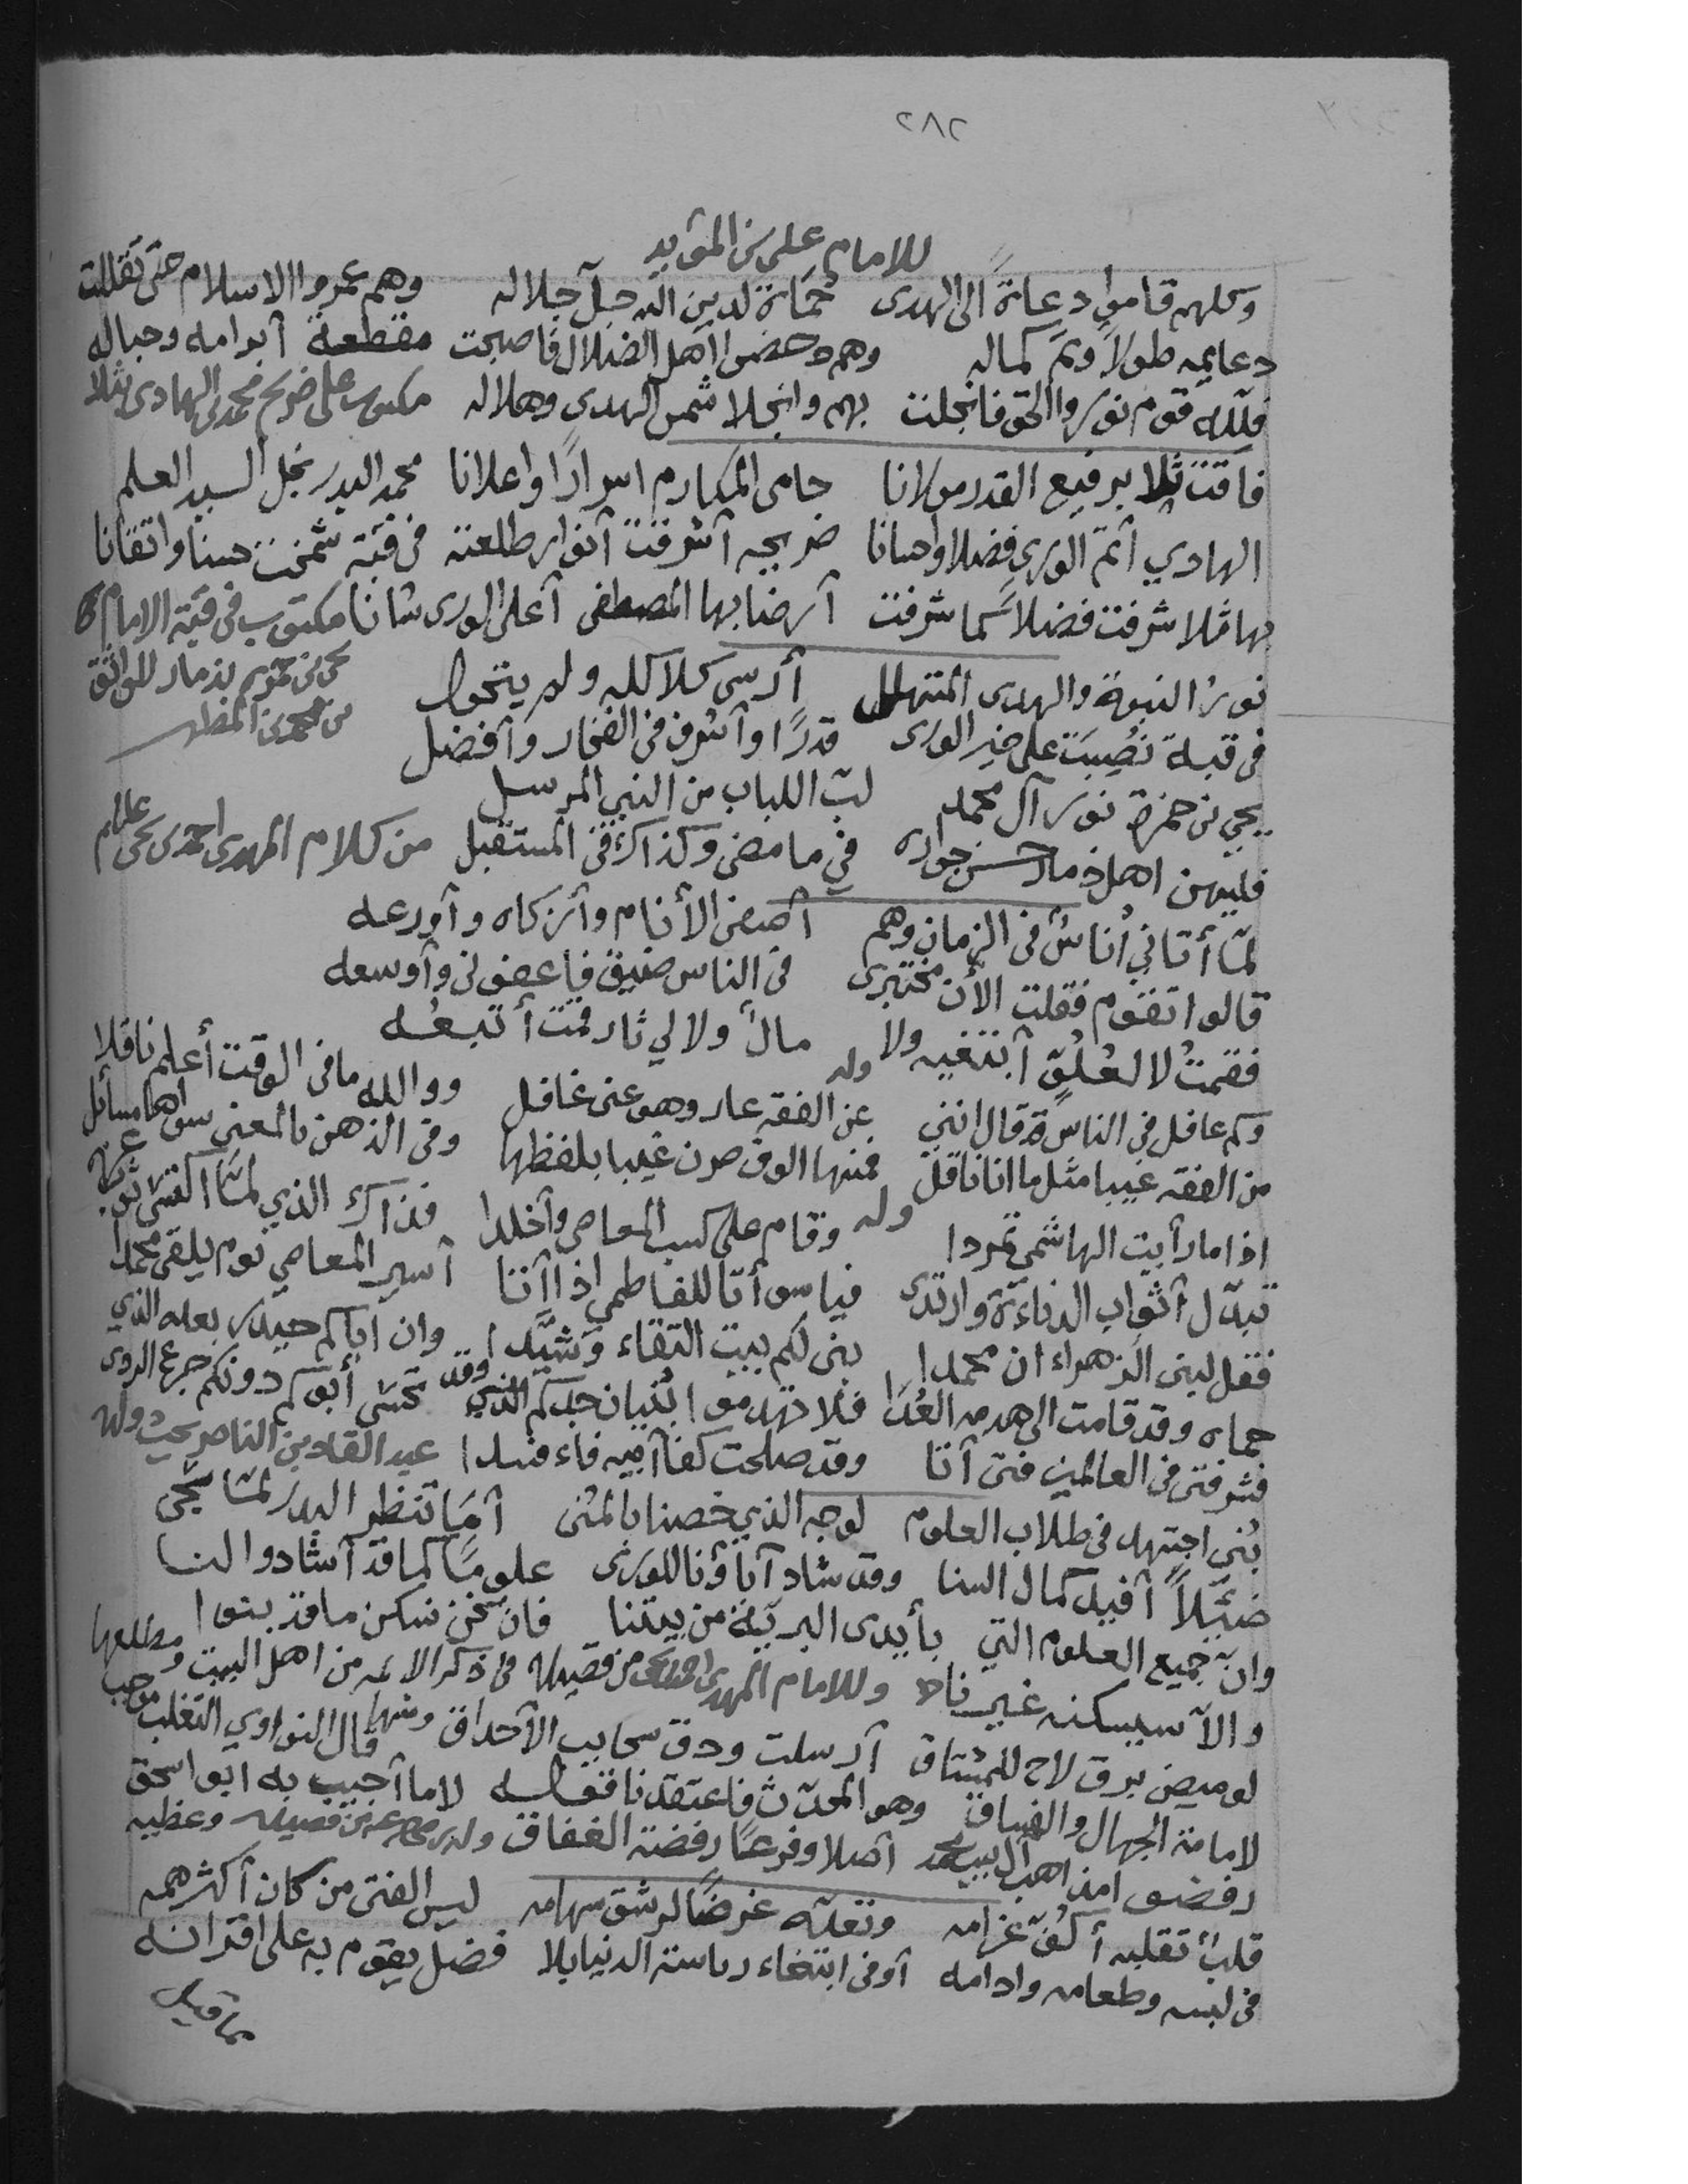 ٢٨٢
للامام علي بن المؤيد
وكلهم قاموا دعاةً الى الهدى حُمَاة لدين الله جل جلاله وهم عمروا الاسلام حتى تقللت
دعايمه طولاً وتم كماله وهم دحضوا اهل الضلال فاصبحت مقطعة ابرامه وحباله
فلله قوم نوروا الحق فانجلت بهم وانجلا شمس الهدى وهلاله مكتوب على ضريح محمد بن الهادي بثلا
فاقت ثلا برفيع القدر مولانا حامي المكارم اسرارًا واعلانا محمد البدر نجل السيد العلم
الهادي أتم الورى فضلا واحسانا ضريحه أشرقت أنوار طلعته في قبة شمخت حسنا واتقانا
بها ثلا شرفت فضلاً كما شرفت أرضا بها المصطفى أعلى الورى شانا مكتوب في قبة الامام
يحيى بن حمزه بذمار للواثق
نور النبوة والهدى المتهلل أرسى كلاكله ولم يتحول
بن محمد بن المطهر
في قبة نُصِبَت على خير الورى قدرًا وأشرف في الفخار وأفضل
يحيى بن حمزة نور آل محمد لبّ اللباب من النبي المرسل
فليهن اهل ذمار حسن جواره في ما مضى وكذاك في المستقبل من كلام المهدي احمد بن يحيى عليلم
لمّا أتاني أُناسٌ في الزمان وهم أصفى الأنام وأزكاه وأورعه
قالوا تقوم فقلت الأن مختبرى في الناس ضيق فاعفوني وأوسعه
فقمتُ لا لعُلُوّ أبتغيه ولا مالٌ ولا لي ثار قمت أتبعُه
وله
وكم غافل في الناس قال انني عن الفقه عار وهو عني غافل ووالله ما في الوقت أعلم ناقلا
من الفقه غيبا مثل ما انا ناقل فمنها الوف صرن غيبا بلفظها وفي الذهن بالمعنى سواها مسائل
وله
اذا ما رأيت الهاشمي تمردا وقام على كسب المعاصي وأخلدا فذاك الذي لمّا اكتسى ثوب عزه
تبدّل أثواب الدناءة وارتدى فيا سوأتا للفاطمي اذا أتا أسير المعاصي يوم يلقى محمدا
فقل لبني الزهراء ان محمدا بنى لكم بيت التقاء وشيّدا وان أباكم حيدر بعله الذي
حماه وقد قامت الى هدمه العُدَا فلا تهدموا بنيان جدكم الذي وقد تحسّى أبوكم دونكم جرع الردى
فشر فتى في العالمين فتى أتا وقد صلحت كفا أبيه فاء فسدا عبد القادر بن الناصر يحث ولده
بُني اجتهد في طلاب العلوم لوجه الذي خصنا بالمُنى أمَا تنظر البدر لمّا يجي
ضئيلاً أفيد كمال السنا وقد شاد آباؤنا للورى علومًا كما قد أشادوا لنا
وانّ جميع العلوم التي بأيدى البريّة من بيتنا فان نحن نسكن ما قد بنوا
والاّ سيسكنه غيرنا وللامام المهدي احمد بن يحيى من قصيدة في ذكر الائمه من اهل البيت ومطلعها
لوميض برق لاح للمشتاق أرسلت ودق سحايب الأحداق ومنها قال النواوي التغلب موجب
لامامة الجهال والفساق وهو المحدّث فاعتقدنا قوله لاما أجيب به ابو اسحق
رفضوا مذاهب آل بيت محمد أصلا وفرعًا رفضة الغفاق
قلبٌ تقلبه أكُفّ غرامه وتعلّه غرضًا لرشق سهامه ليس الفتى من كان أكثر همه
في لبسه وطعامه وادامه أو في ابتغاء رياسة الدنيا بلا فضل يقوم به على اقرانه